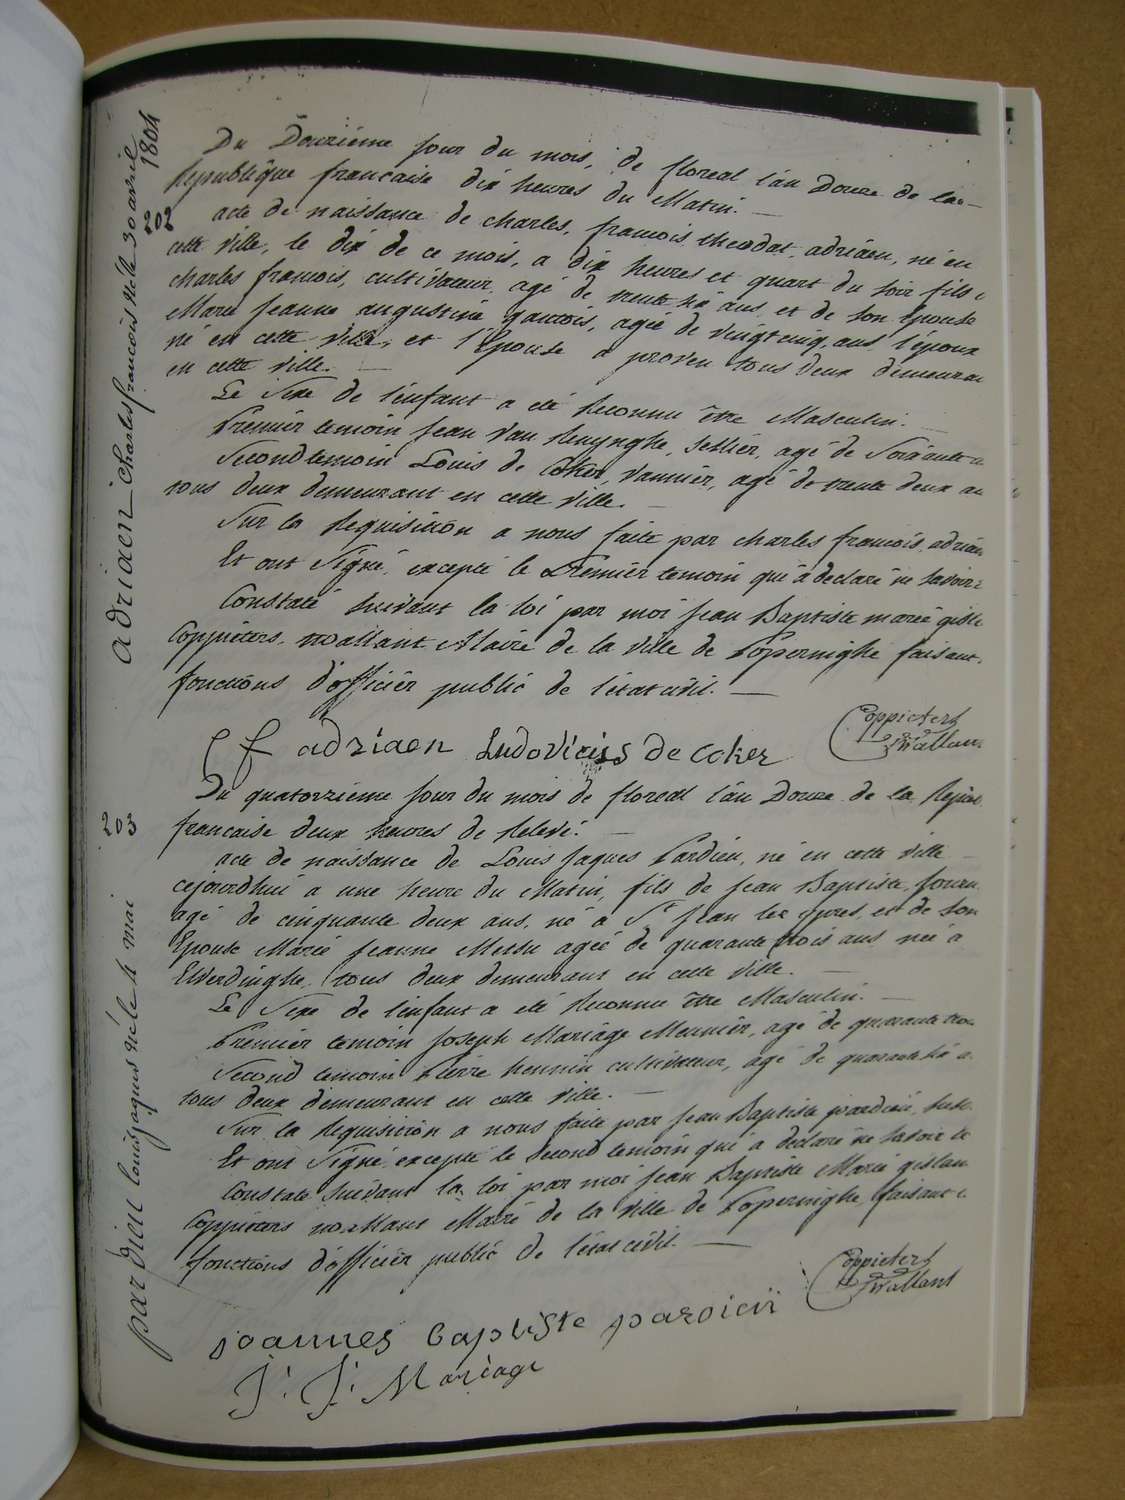 1804
adriaen Charles francois né le 30 avril
202
Du Douziéme jour du mois, de floreal l'an Douze de la-
Republique francaise dix heures du Matin.
acte de naissance de charles, francois theodat, adriaen, né en
cette ville, le dix de ce mois, a dix heures et quart du soir fils
charles francois, cultivateur, agé de trente six ans, et de son Epouse
Marie Jeanne augustine gautois, agée de vingt cinq, ans l'époux
né en cette ville, et l'Epouse a proven tous deux demeuran
en cette ville.
Le Sexe de l'enfant a été Reconnu être Masculin.
Premier temoin Jean Van Renynghe, sellier, agé de Soixante
Second temoin Louis de Coker, vannier, agé de trente deux an
tous deux demeurant en cette ville.
Sur la Requisition a nous faite par charles francois, adriaen
Et ont Signé, excepté le Premier temoin qui a declaré ne savoir
Constaté Suivant la loi par moi Jean Baptiste marie gisle
Coppieters, wallant Maire de la ville de Poperinghe faisant
fonctions d'officier public de l'état civil.
Coppieters
Wallant
C f adriaen Ludovicus De Coker
203
pardieu louis jaques né le 4 mai
Du quatorzieme jour du mois de floreal l'an Douze de la Repub
francaise deux heures de Relevé.
acte de naissance de Louis Jaques Pardieu, né en cette ville
cejourdhui a une heure du Matin, fils de Jean Baptiste, fourn
agé de cinquante deux ans, né a St Jean lez ypres, et de Son
Epouse Marie Jeanne agée de quarante trois ans née a
Elverdinghe, tous deux demeurant en cette ville.
Le Sexe de l'enfant a été Reconnu être Masculin.
Premier temoin Joseph Mariage Meunier, agé de quarante
Second temoin Pierre hennin cultivateur, agé de quarante
tous deux demeurant en cette ville.
Sur la Requisition a nous faite par Jean Baptiste pardieu,
Et ont Signé, excepté le Second temoin qui a declaré ne savoir
Constaté Suivant la loi par moi Jean Baptiste Marie gislan
Coppieters wallant Maire de la ville de Poperinghe, faisant
fonctions d'officier public de l'état civil.
Coppieters
Wallant
joannes baptiste pardieu
J. J. Mariage